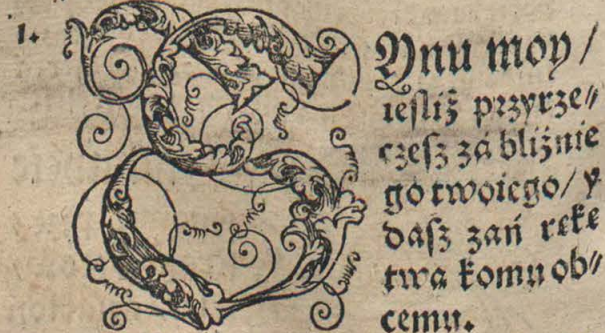 1.
SYnu moy /
iesliż przyrze⸗
czesz zá bliżnie
go twoiego / y
dasz zań rękę
twą komu ob⸗
cemu.